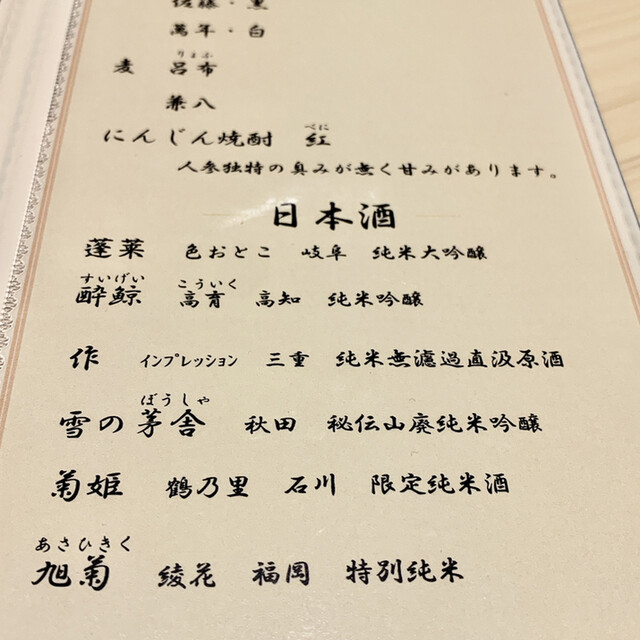 佐藤・黒
萬年・白
りょふ
麦 呂布
兼八
べに
にんじん焼酎 紅
人参独特の臭みが無く甘みがあります。
日本酒
蓬莱 色おとこ 岐阜 純米大吟醸
すいげい こういく
酔鯨 高育 高知 純米吟醸
作 インプレッション 三重 純米無濾過直汲原酒
ぼうしゃ
雪の茅舎 秋田 秘伝山廃純米吟醸
菊姫 鶴乃里 石川 限定純米酒
あさひきく
旭菊 綾花 福岡 特別純米